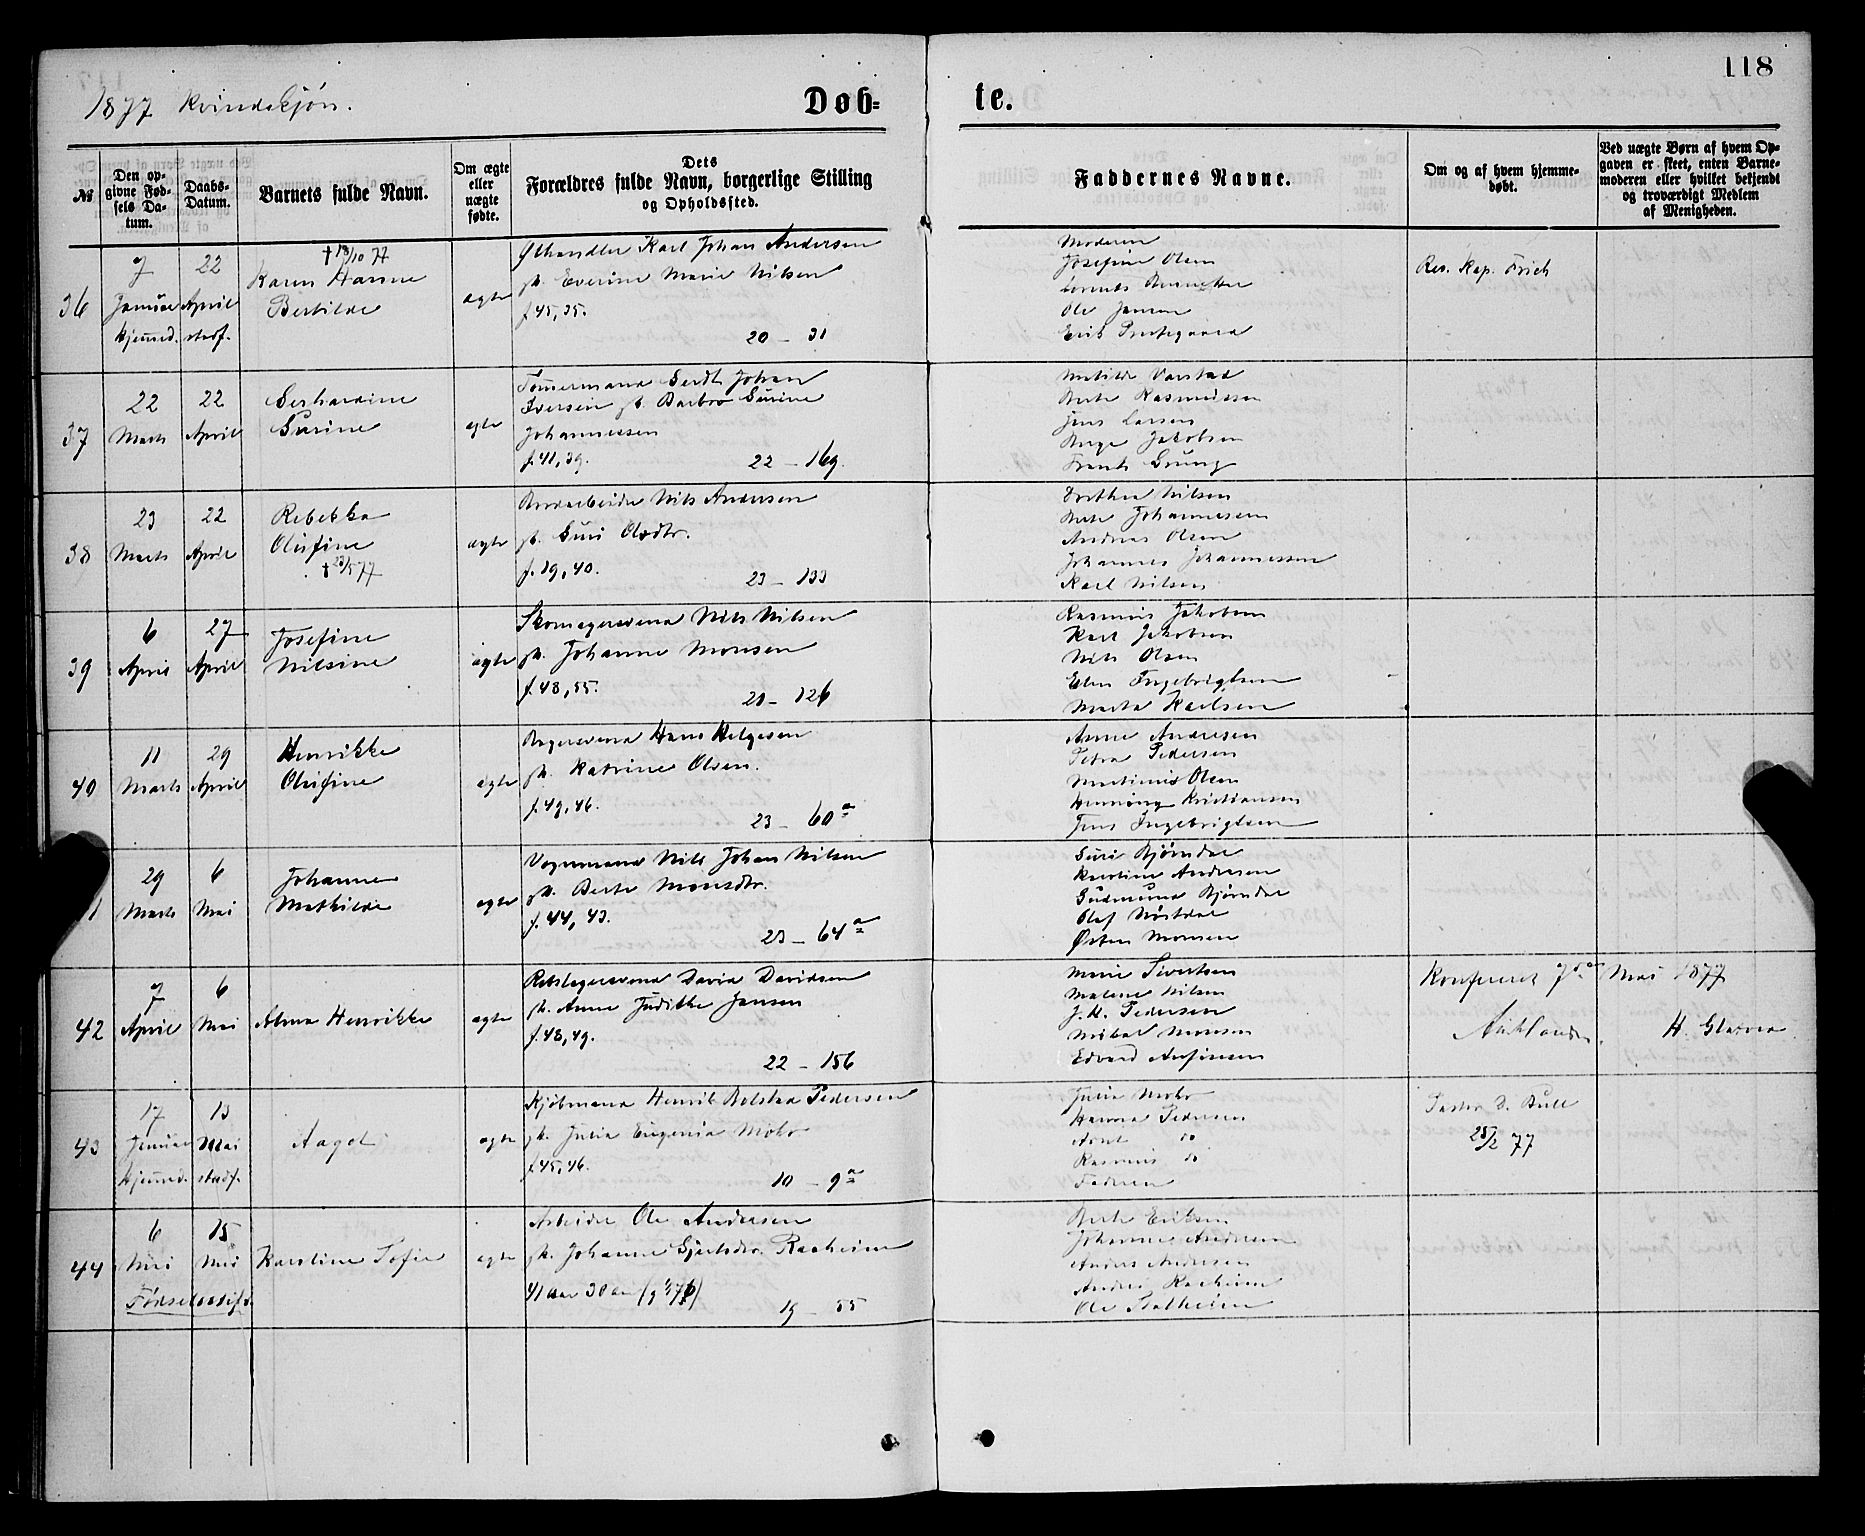 118
1877 Kvindekjøn.
Døb- te.
№
Den opgivne Fødsels Datum.
Daabs-Datum.
Barnets fulde Navn.
Om ægte eller uægte fødte.
Dets Forældres fulde Navn, borgerlige Stilling og Opholdssted.
Faddernes Navne.
Om og af hvem hjemmedøbt.
Ved uægte Børn af hvem Opgaven er skeet, enten Barnemoderen eller hvilket bekjendt og troværdigt Medlem af Menigheden.
36
7 Januar hjemmed.
22 April stadf.
† 18/10 77
Karen Hanne
Bertilde
ægte
Ølhandler Karl Johan Andersen
h. Everine Marie Nilsen
f. 45, 35.
20 - 31
Moderen
Josefine Olsen
Ole Jansen
Erik Prestegaard
Res. Kap. Frich
37
22 Marts
22 April
Gerhardine
Gurine
ægte
Tømermand Gerdt Johan
Iversen h. Barbro Gurine
Johannessen
f. 41, 39.
22 - 169.
Matilde Varstad
Berte Rasmussen
Jens Larsen
Inge Jakobsen
38
23 Marts
22 April
Rebekka
Olufine
† 23/5 77
ægte
Nils Andersen
h. Guri Olsdtr.
f. 19, 40.
23 - 133
Dorthea Nilsen
Berte Johannesen
Andreas Olsen
Johannes Johannessen
Karl Nilsen
39
6 April
27 April
Josefine
Nilsine
ægte
Skomagersvend Nils Nilsen
h. Johanne Monsen
f. 48, 55.
21 - 126
Rasmus Jakobsen
Karl Jakobsen
Nils Olsen
Elen Ingebrigtsen
Marta Karlsen
40
11 Marts
29 April
Henrikke
Olufine
ægte
Bagersvend Hans Helgesen
h. Katrine Olsen.
f. 49, 46.
23 - 60 a
Anne Andresen
Petra Pedersen
Martinus Olsen
Henning Kristiansen
Jens Ingebrigtsen
1
29 Marts
6 Mai
Johanne
Mathilde
ægte
Vognmand Nils Johan Nilsen
h. Berte Monsdtr.
f. 44, 43.
23 - 64 a
Guri Bjørndal
Karoline Andresen
Gudmund Bjørndal
Olaf Nøstdal
Østen Monsen
42
7 April
6 Mai
Alma Henrikke
ægte
Rebslagersvend David Davidsen
h. Anne Judithe Jansen
f. 48, 49.
22 - 156
Marie Sivertsen
Malene Nilsen
J. H. Pedersen
Mikal Monsen
Edvard Anfinsen
Konfereret 7de Mai 1877
H. Glarva
43
17 Januar hjemmed.
13 Mai stadf.
Aagot
ægte
Kjøbmand Henrik Bolstad Pedersen
h. Julia Eugenia Mohr
f. 45, 46.
10 - 9 a
Julia Mohr
Hanna Pedersen
Arnt do
Rasmus do
Faderen
Pastor D. Bull
25/2 77
44
6 Mai
15 Mai
Karoline Sofie
ægte
Arbeider Ole Andersen
h. Johanne Gjertsdtr. Raaheim
19 - 55
Berte Eriksen
Johannes Andersen
Anders Andersen
Anders Raaheim
Ole Stalheim
Fødselsstift.